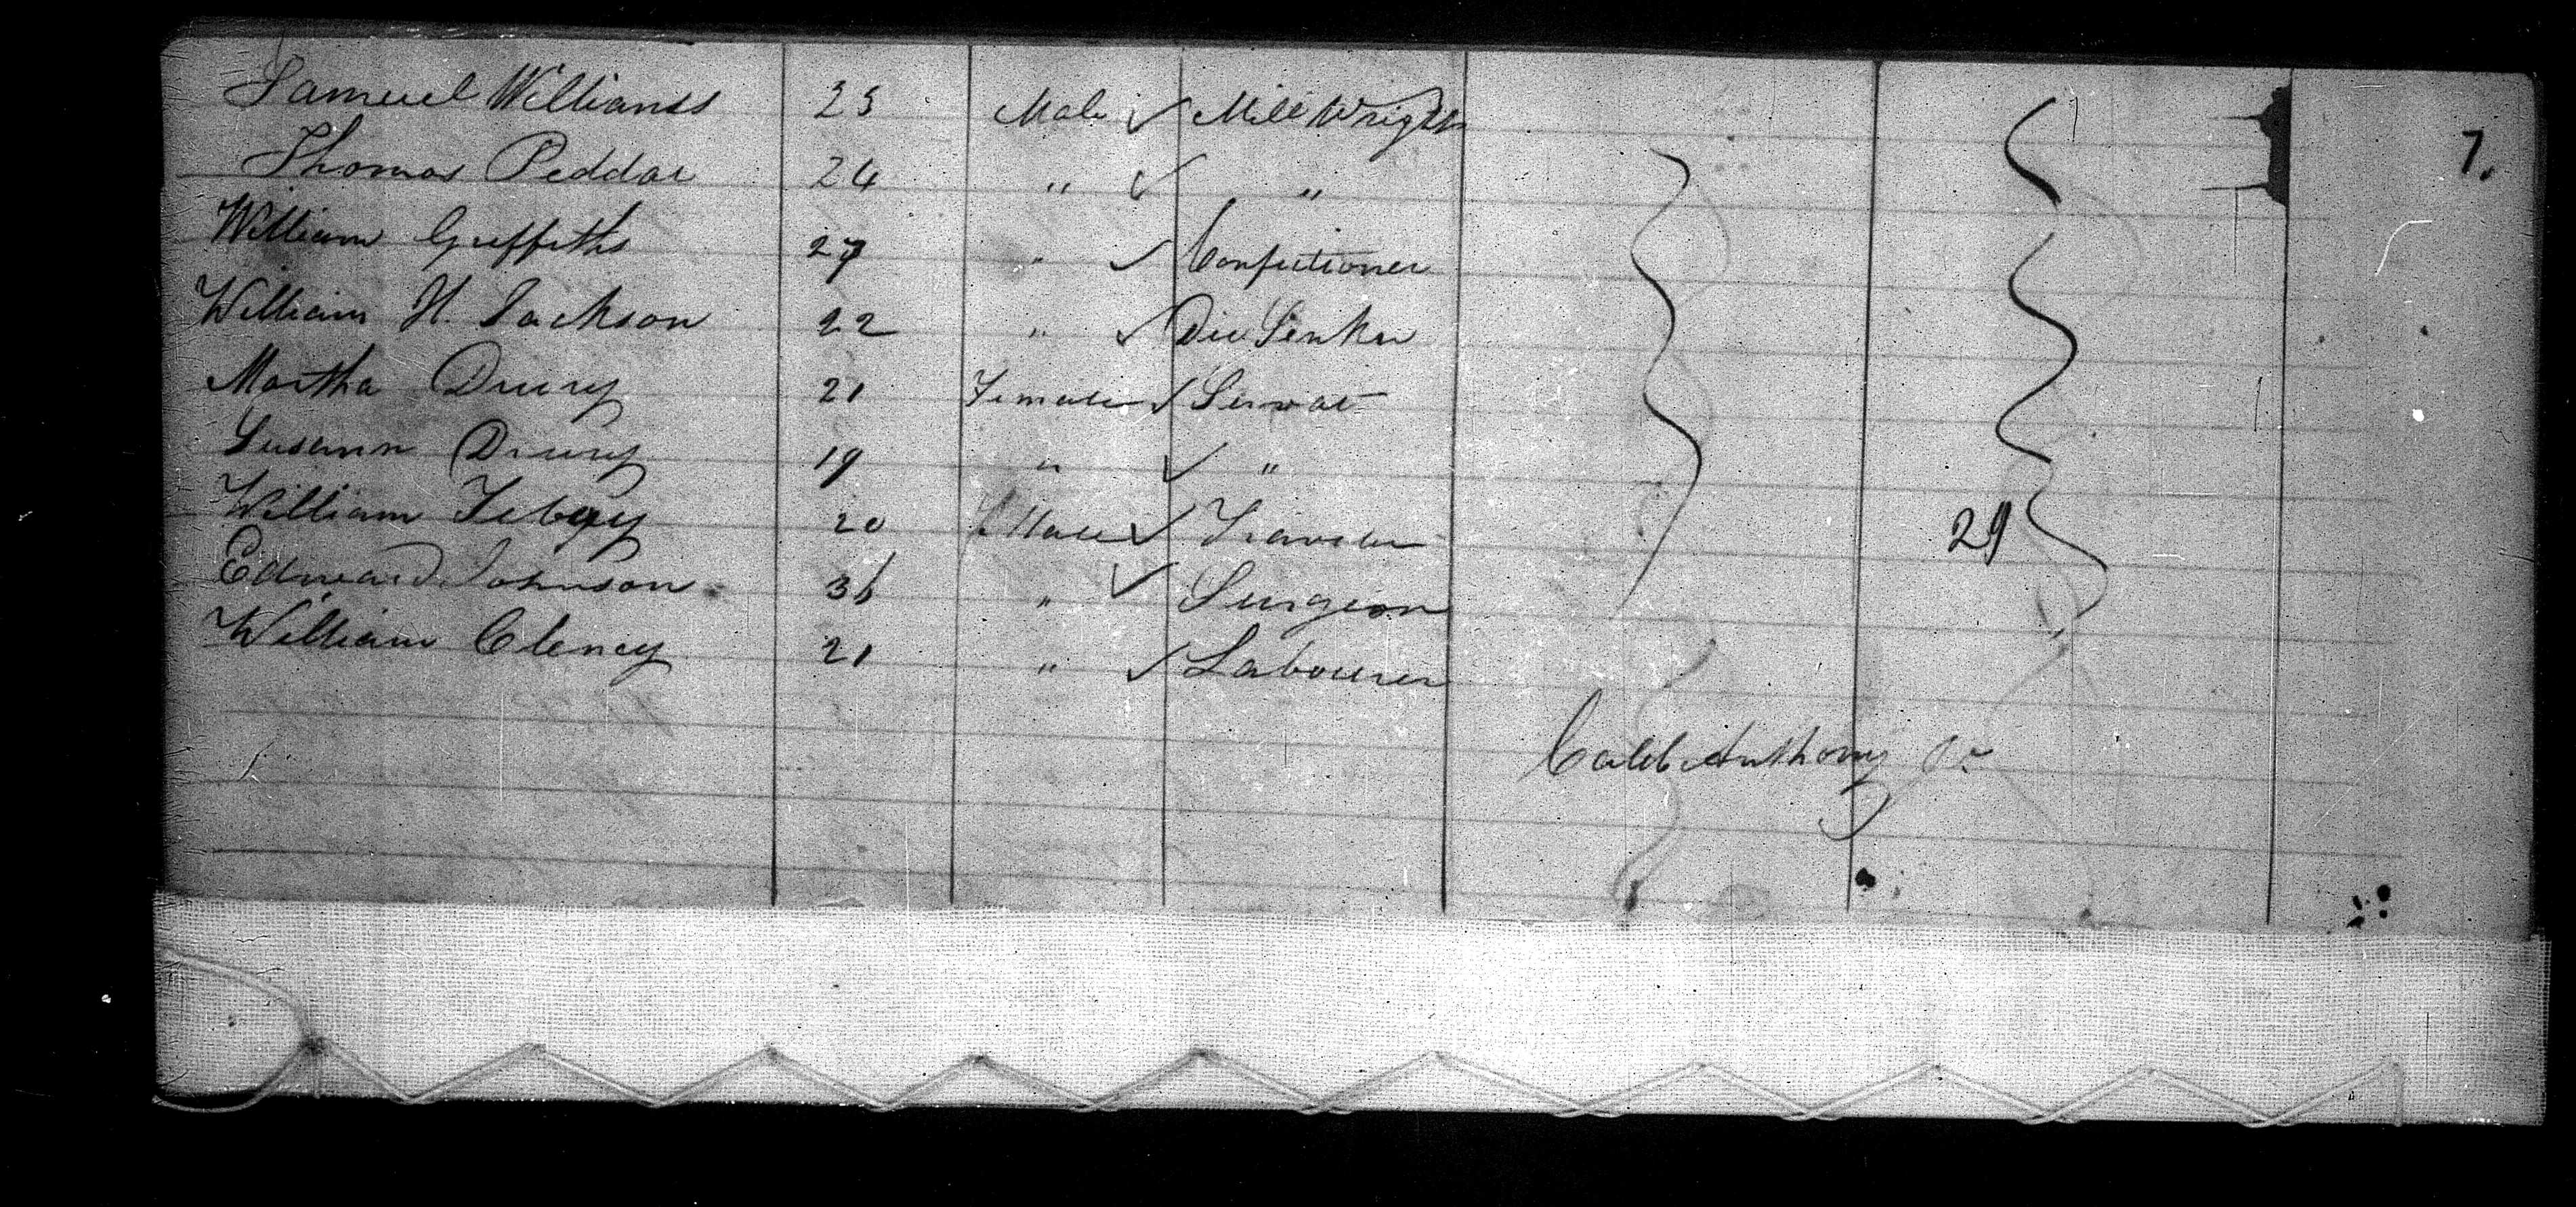 Samuel Williams 25 Male ✓ Mill Wright
7.
Thomas Peddar 24 " ✓ "
William Griffiths 27 " ✓ Confectioner
William H. Jackson 22 " ✓ Die Sinker
Martha Drury 21 Female ✓ Servat
Susann Drury 19 " ✓ "
William Tebay 20 Male ✓ Traveler
29
Edward Johnson 36 " ✓ Surgeon
William Clency 21 " ✓ Labourer
Caleb Anthony Jr